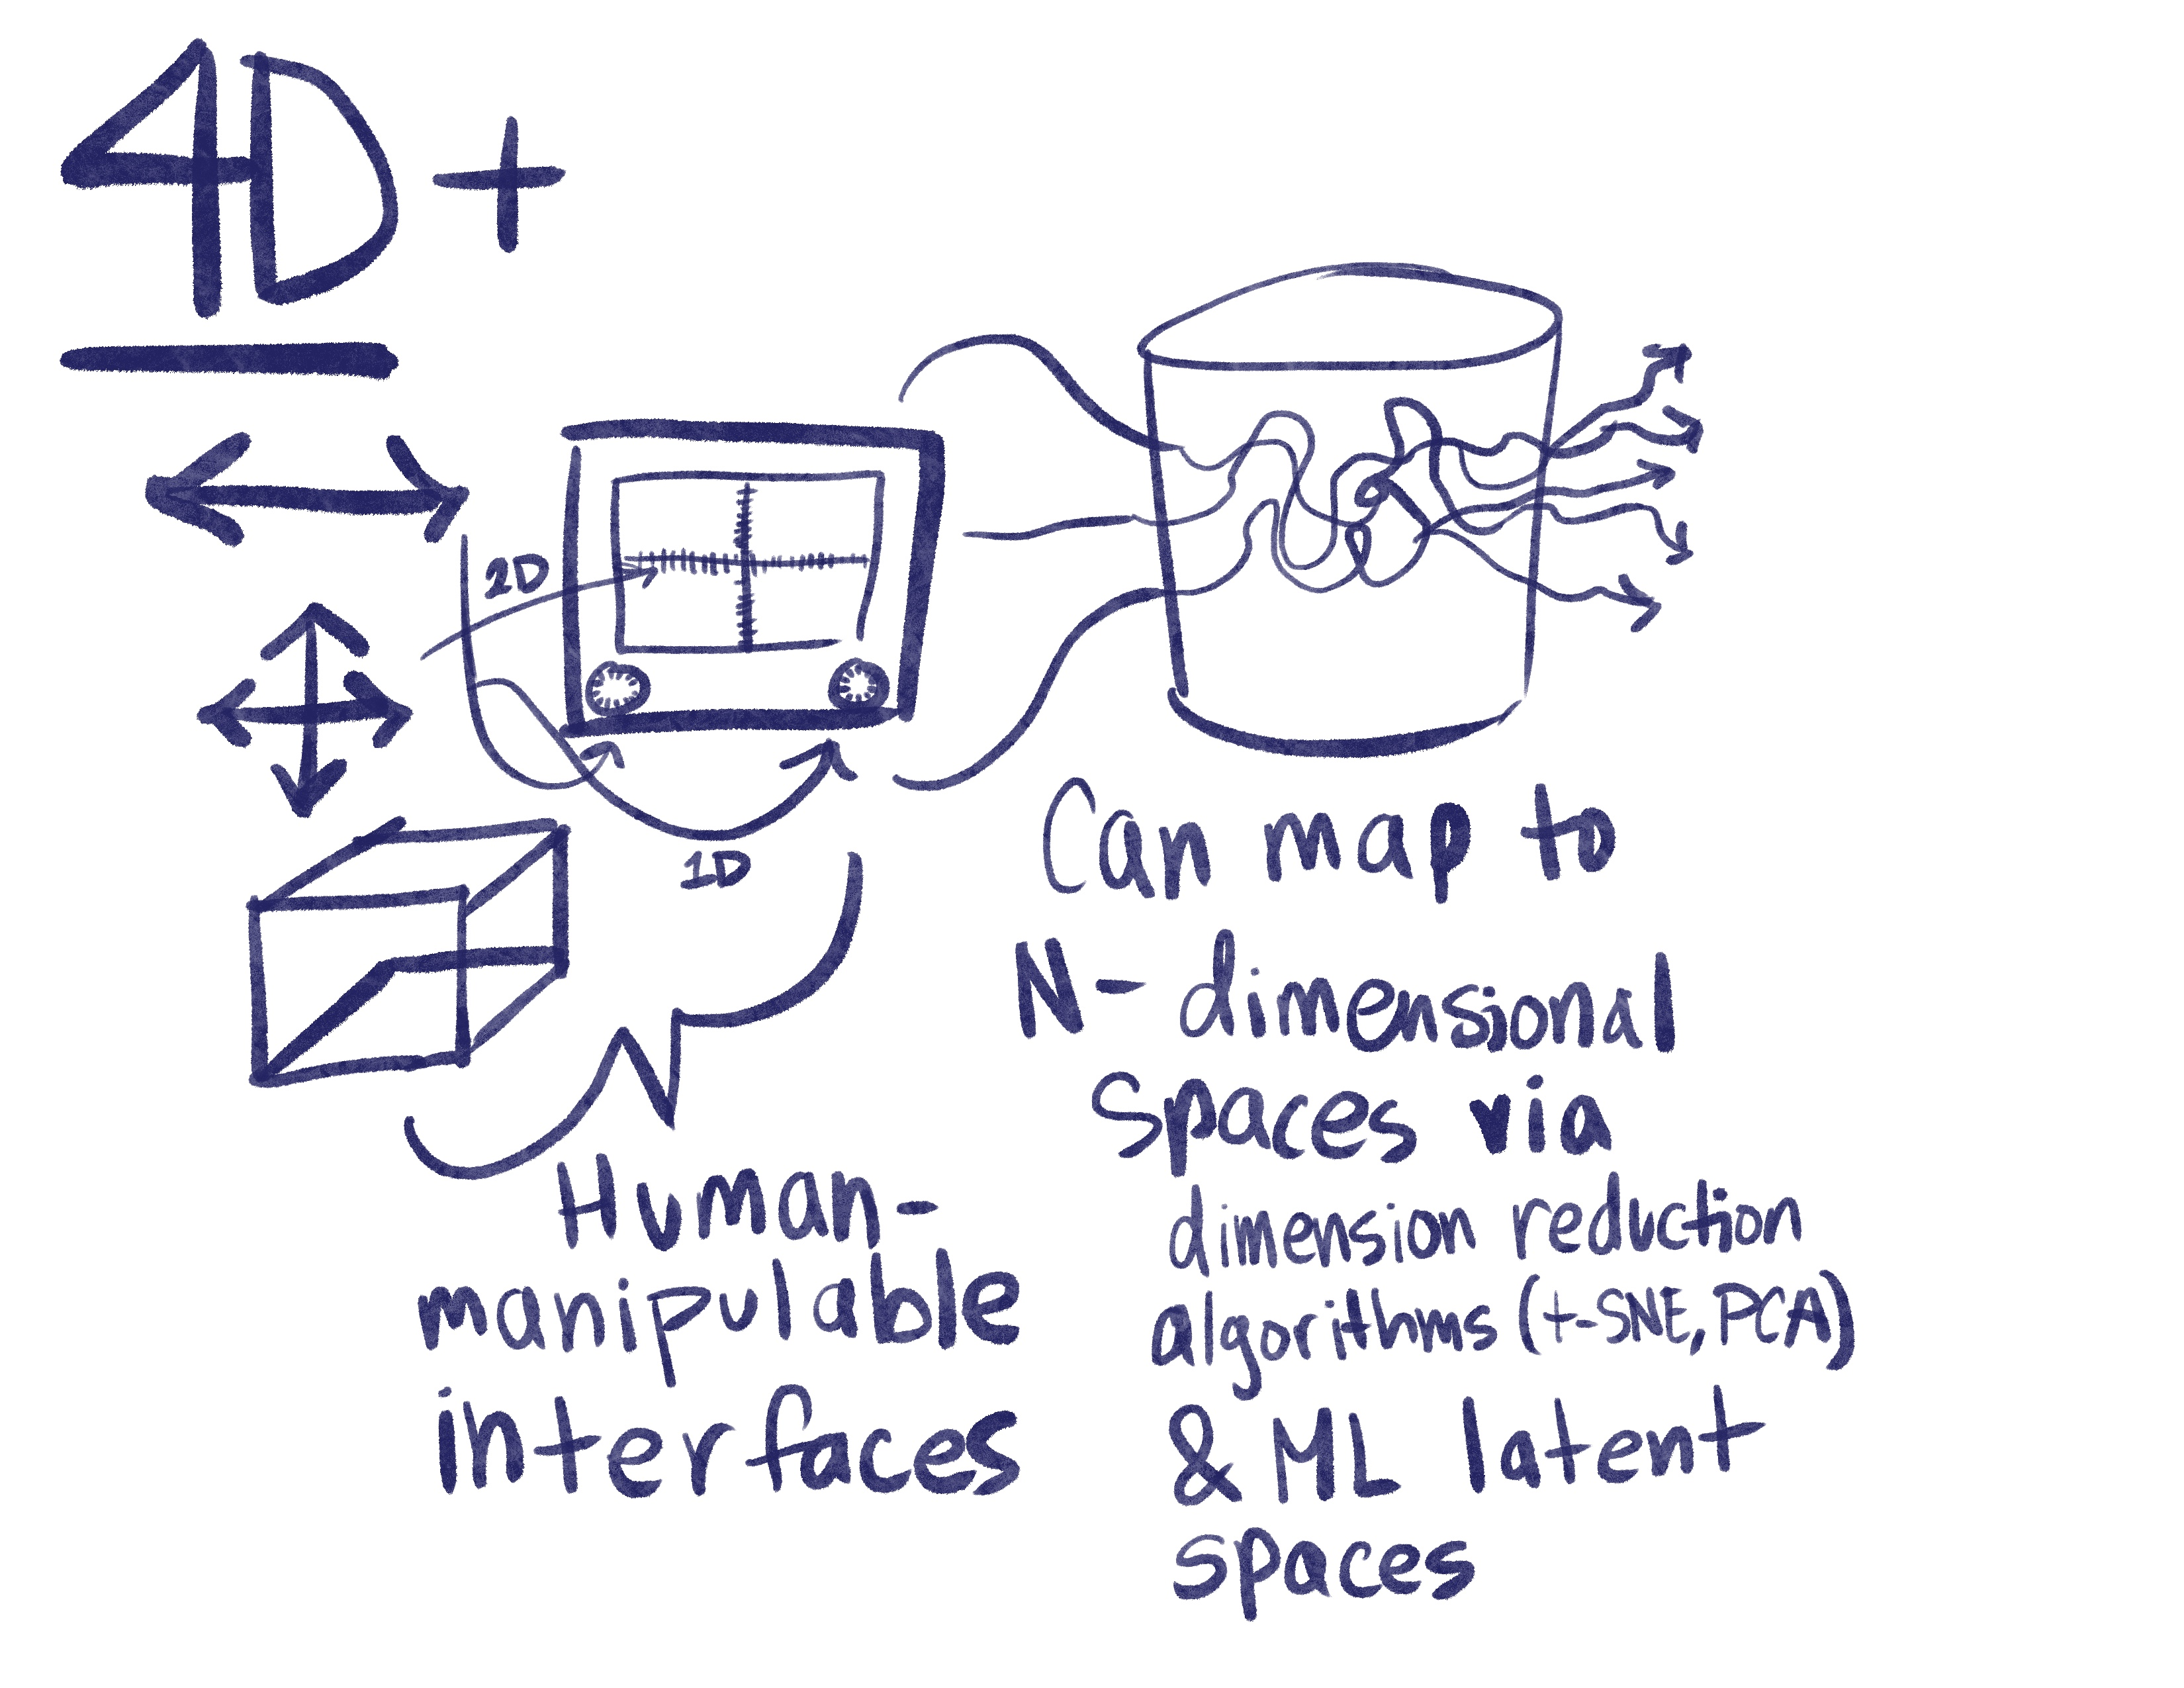 4D+
2D
1D
Human-
manipulable
interfaces
Can map to
N-dimensional
Spaces via
dimension reduction
algorithms (t-SNE, PCA)
& ML latent
spaces